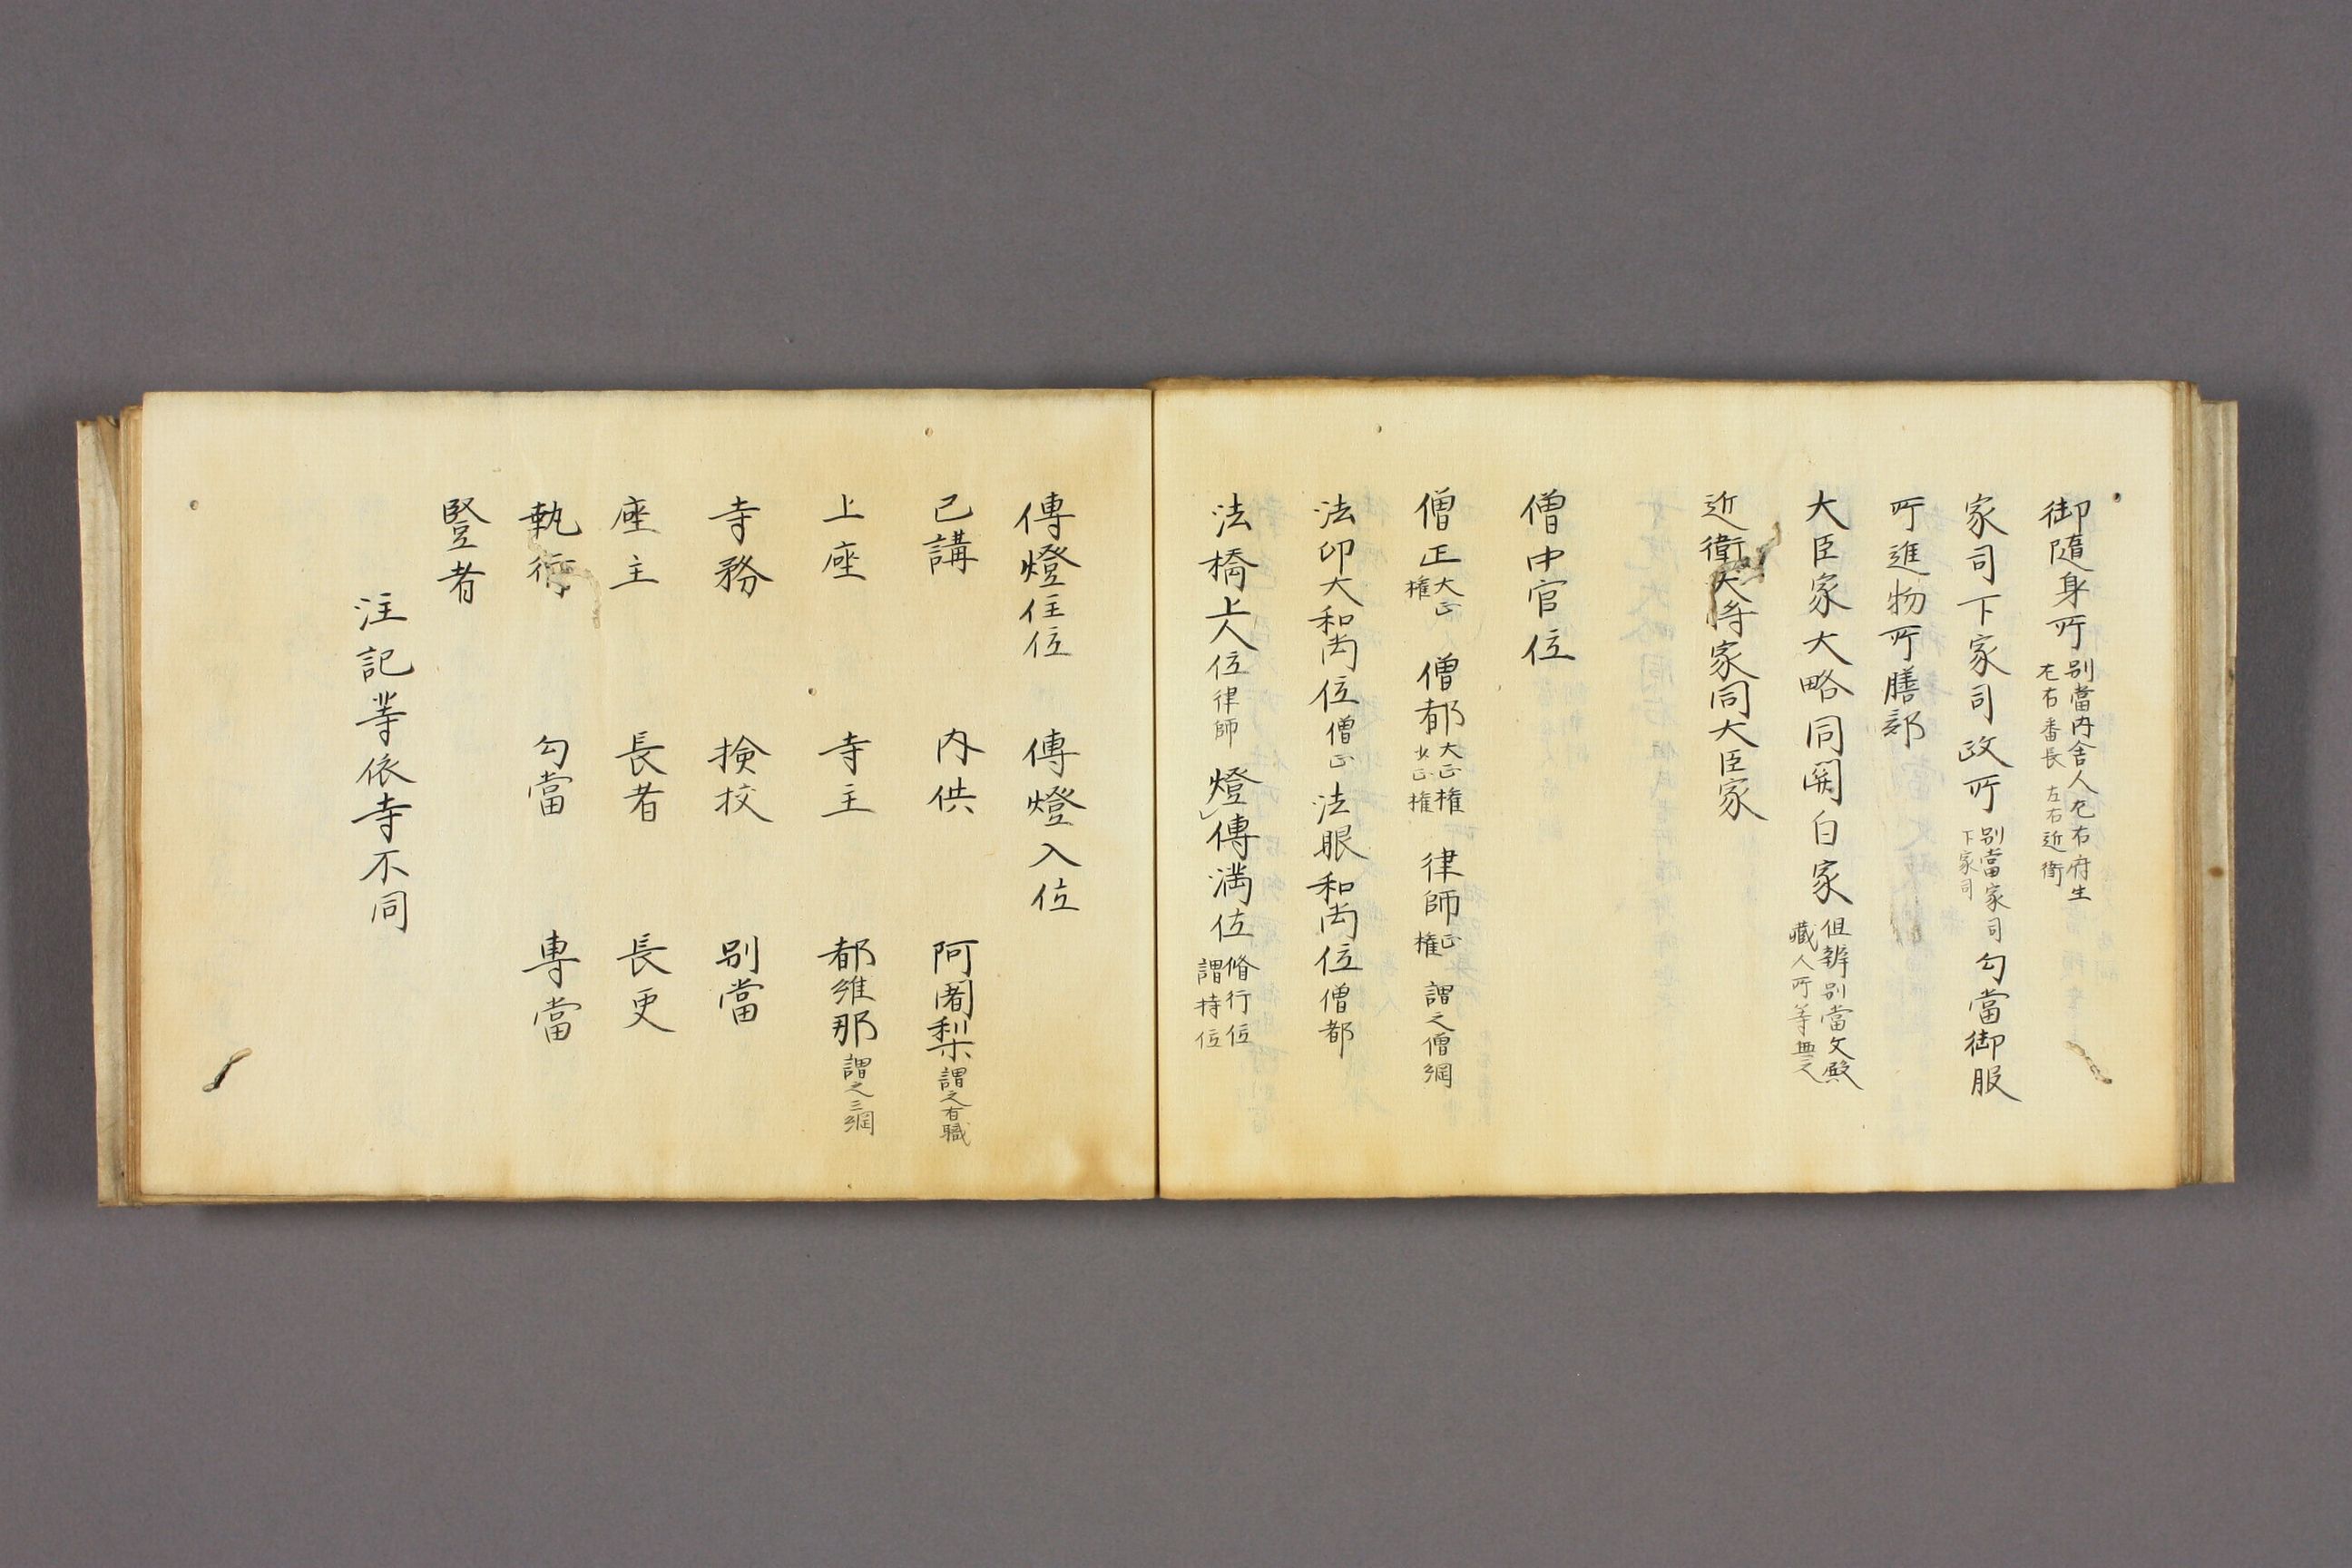 御隨身所 別當内舎人左右府生 左右番長 左右近衛
家司下家司政所 別當家司 下家司 勾當御服
所進物所膳部
大臣家大略同関白家 但辨別當文殿 藏人所等無之
近衛大将家同大臣家
僧中官位
僧正 大正 権 僧都 大正権 少正権 律師 正権 謂之僧綱
法印大和尚位 僧正 法眼和尚位 僧都
法橋上人位 律師 燈傳満位 脩行位 謂持位
傳燈住位 傳燈入位
已講 内供 阿闍梨 謂之有職
上座 寺主 都維那 謂之三綱
寺務 撿挍 別當
座主 長者 長吏
執行 勾當 専當
竪者
注記等依寺不同